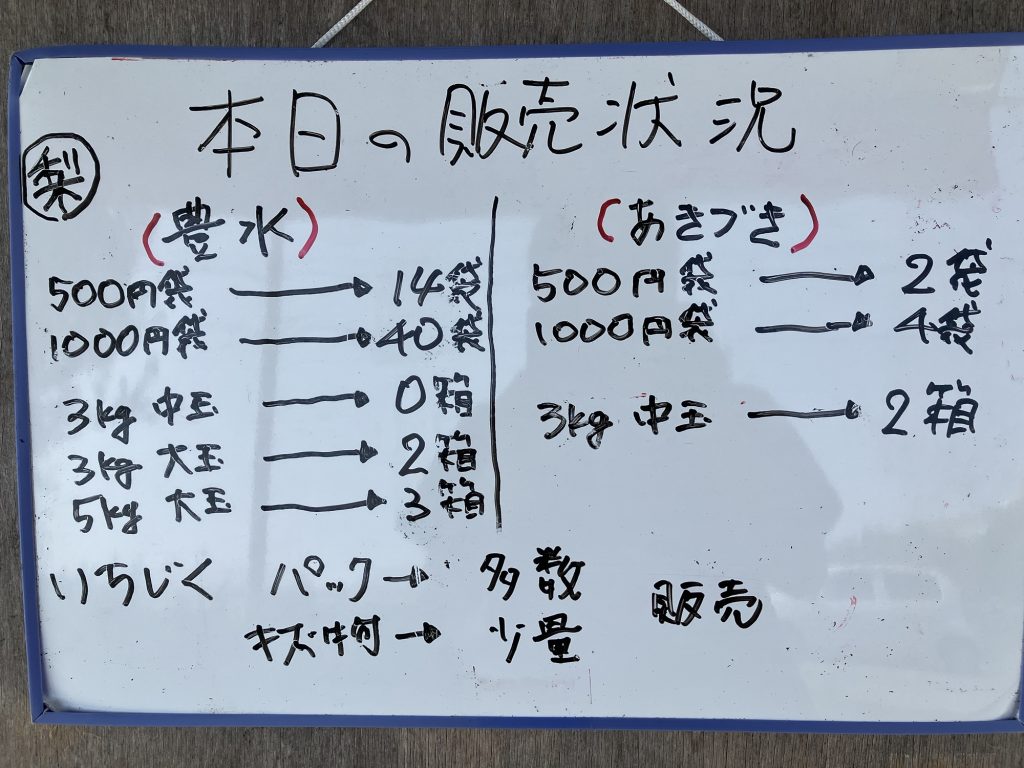 本日の販売状況
梨
(豊水)
500円袋 → 14袋
1000円袋 → 40袋
3kg 中玉 → 0箱
3kg 大玉 → 2箱
5kg 大玉 → 3箱
(あきづき)
500円袋 → 2袋
1000円袋 → 4袋
3kg 中玉 → 2箱
いちじく パック → 多数
キズ物 → 少量
販売